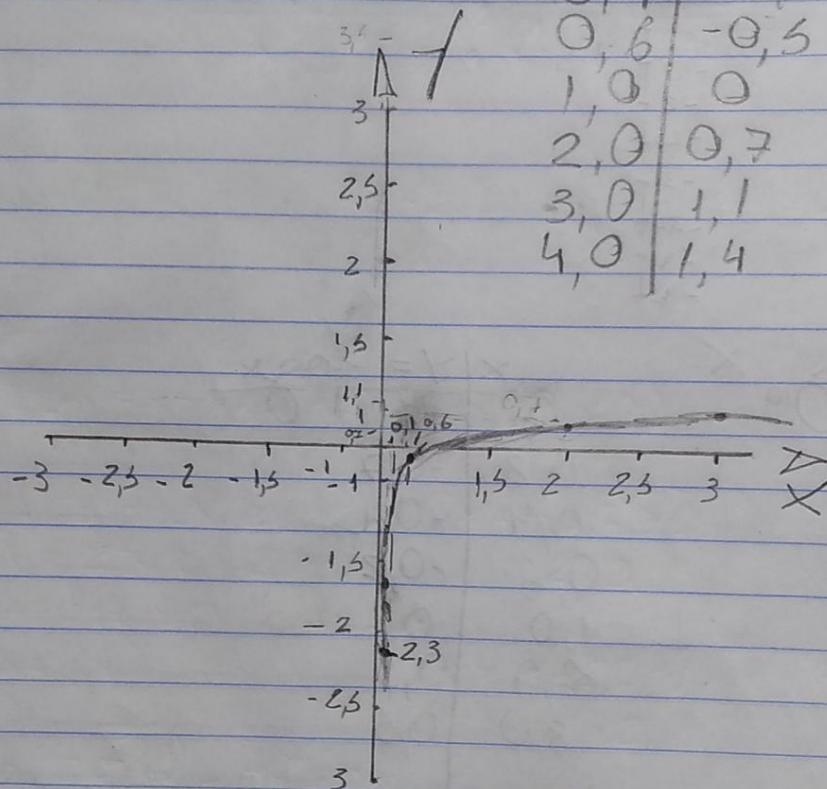 3,5 Y
0,6 -0,5
1,0 0
2,0 0,7
3,0 1,1
4,0 1,4
3
2,5
2
1,5
1,1
1
0,7 0,1 0,6 0,7
-3 -2,5 -2 -1,5 -1 1 1,5 2 2,5 3 X
-1
-1,5
-2
-2,3
-2,5
3